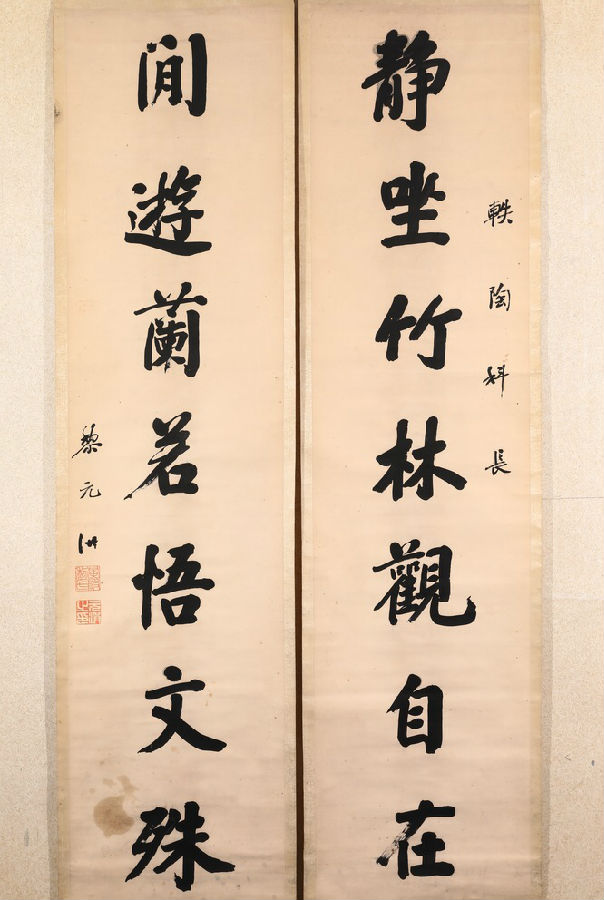 軼陶科長
静坐竹林觀自在
閒遊蘭若悟文殊
黎元洪